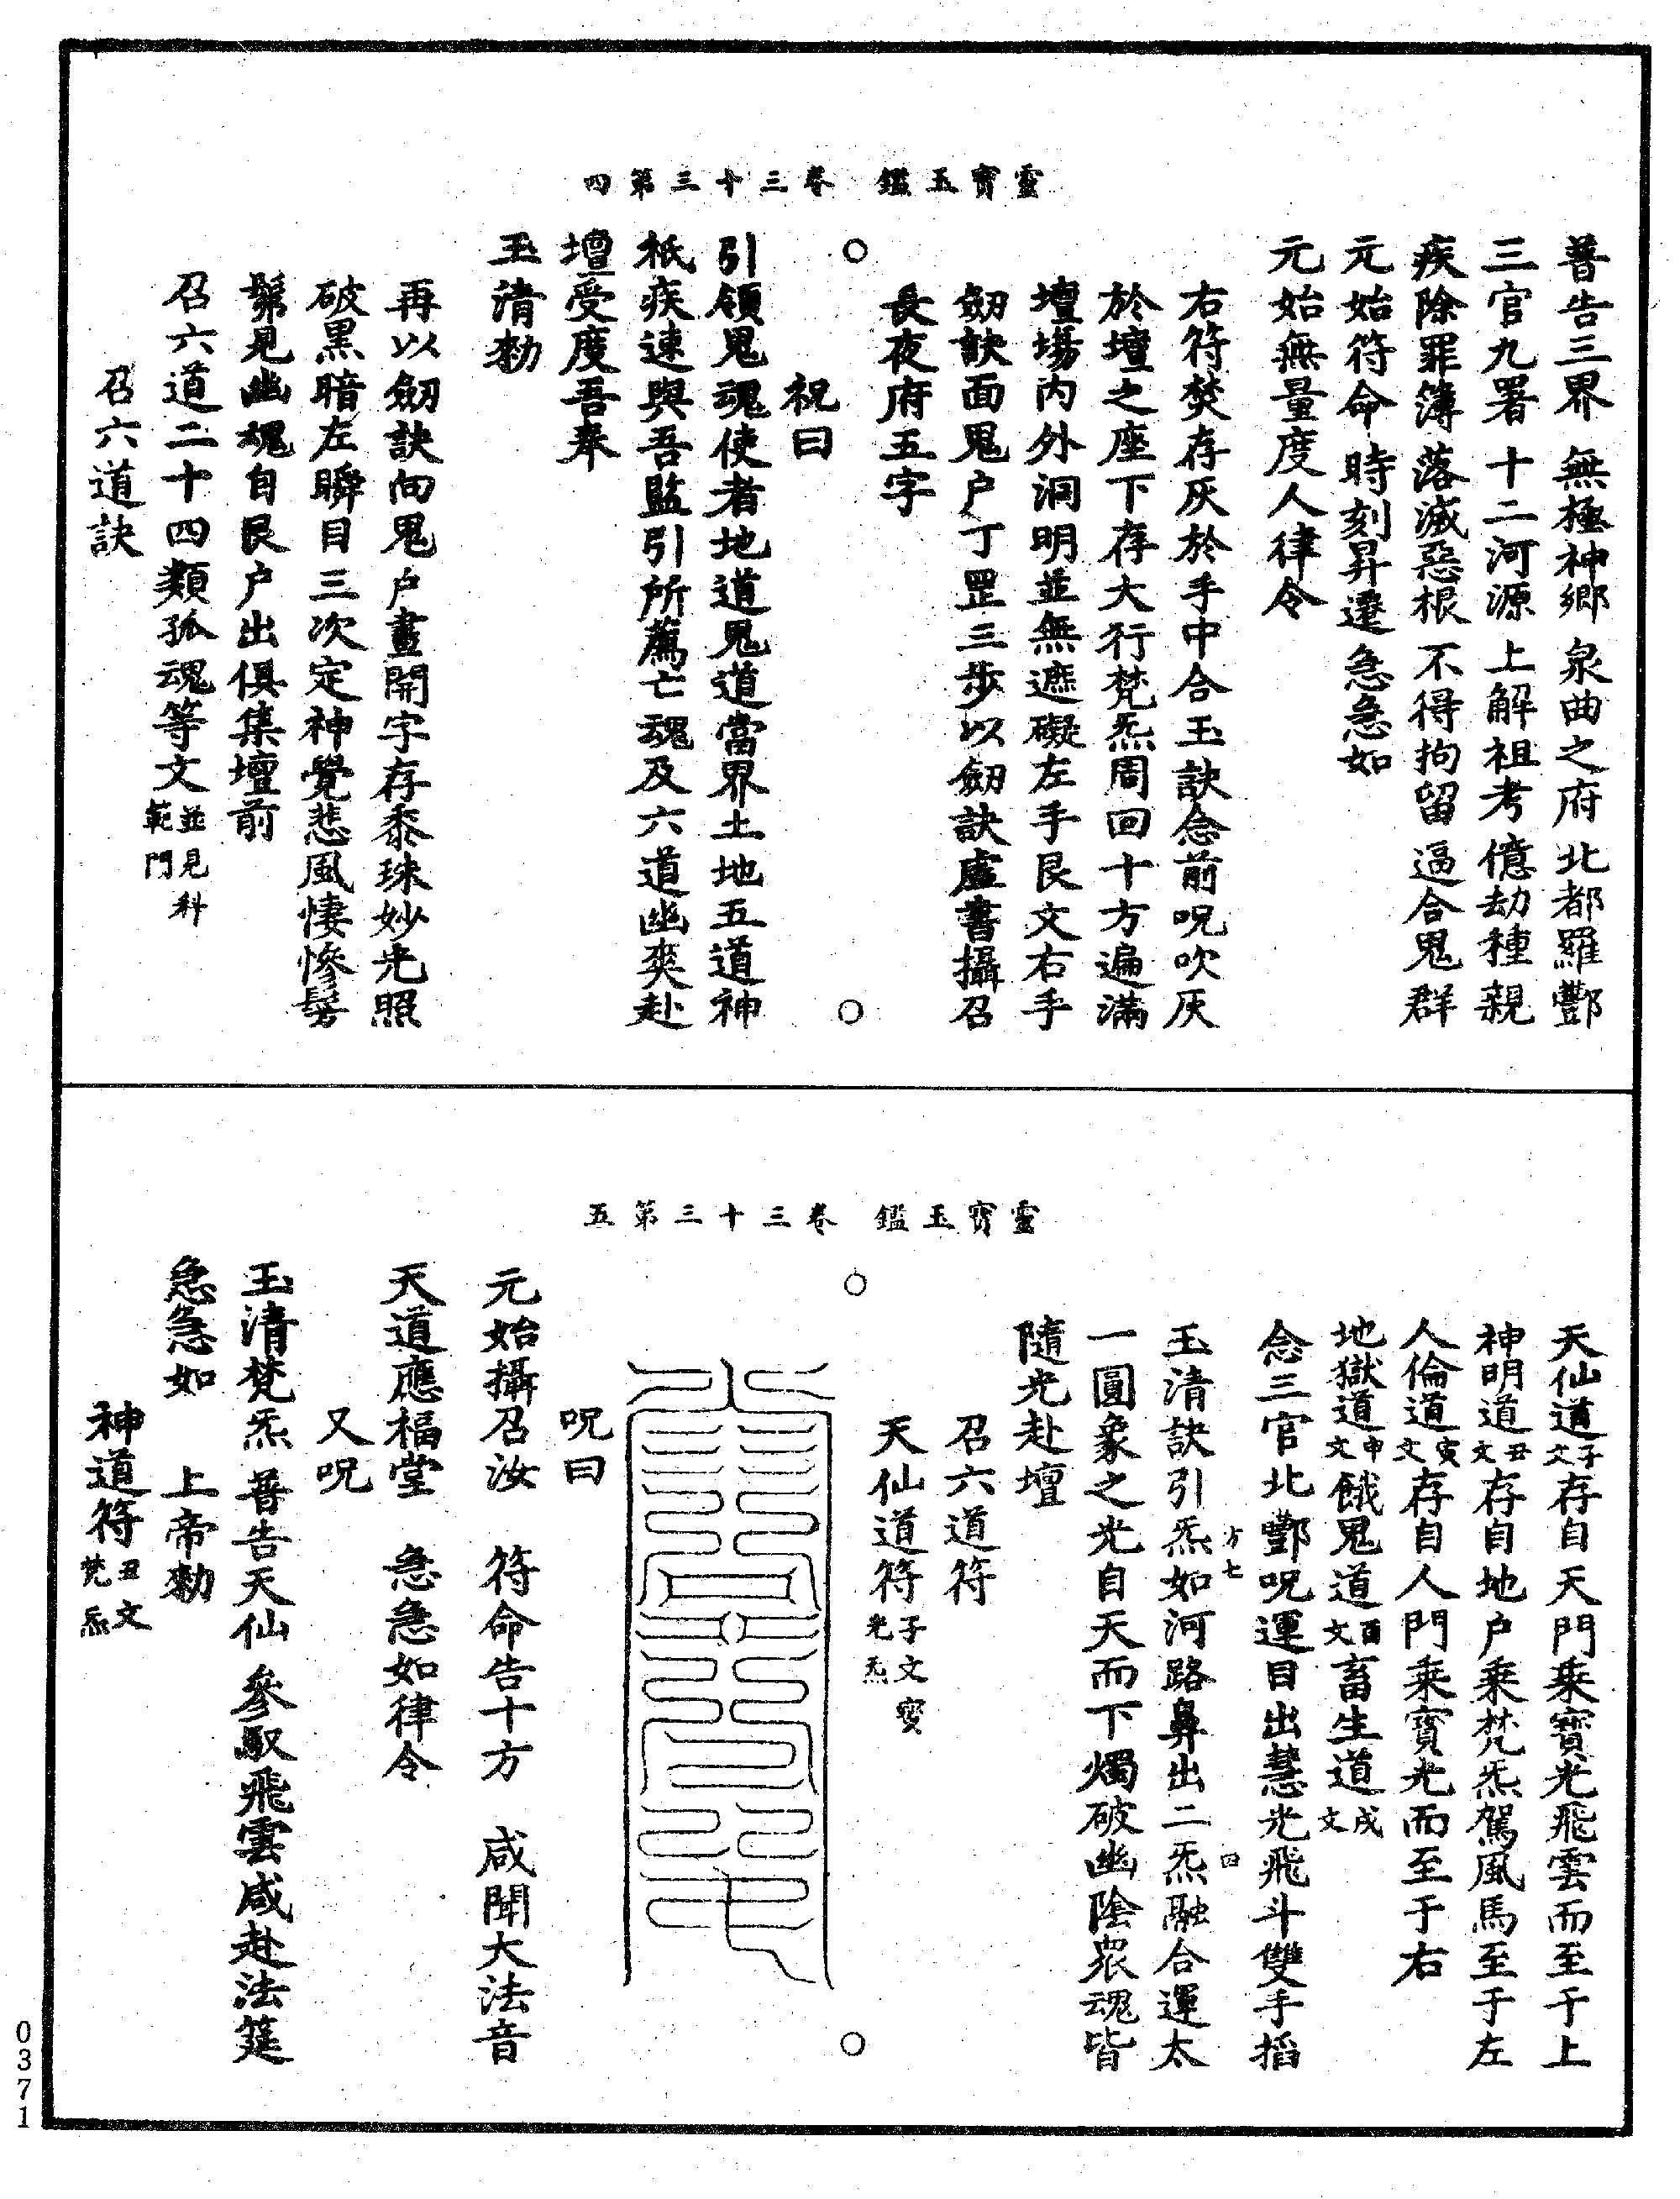 靈寶玉鑑 卷三十三第四
普告三界 無極神鄉 泉曲之府 北都羅酆
三官九署 十二河源 上解祖考 億劫種親
疾除罪簿 落滅惡根 不得拘留 逼合鬼群
元始符命 時刻昇遷 急急如
元始無量度人律令
右符焚存灰於手中合玉訣念前呪吹灰
於壇之座下存大行梵炁周回十方遍滿
壇場内外洞明並無遮礙左手艮文右手
劒訣面鬼户丁罡三步以劒訣虛書攝召
長夜府五字
祝曰
引領鬼魂使者地道鬼道當界土地五道神
祇疾速與吾監引所薦亡魂及六道幽爽赴
壇受度吾奉
玉清勑
再以劒訣向鬼户畫開字存黍珠妙光照
破黑暗左瞬目三次定神覺悲風悽慘髣
髴見幽魂自艮户出俱集壇前
召六道二十四類孤魂等文並見科範門
召六道訣
靈寶玉鑑 卷三十三第五
天仙道子文存自天門乘寶光飛雲而至于上
神明道丑文存自地户乘梵炁駕風馬至于左
人倫道寅文存自人門乘寶光而至于右
地獄道申文餓鬼道酉文畜生道戌文
念三官北酆呪運目出慧光飛斗雙手掐
玉清訣引炁如河路鼻出二炁融合運太
方七 四
一圓象之光自天而下燭破幽陰衆魂皆
隨光赴壇
召六道符
天仙道符子文寶光炁
呪曰
元始攝召汝 符命告十方 咸聞大法音
天道應福堂 急急如律令
又呪
玉清梵炁 普告天仙 參馭飛雲咸赴法筵
急急如 上帝勑
神道符丑文梵炁
0371